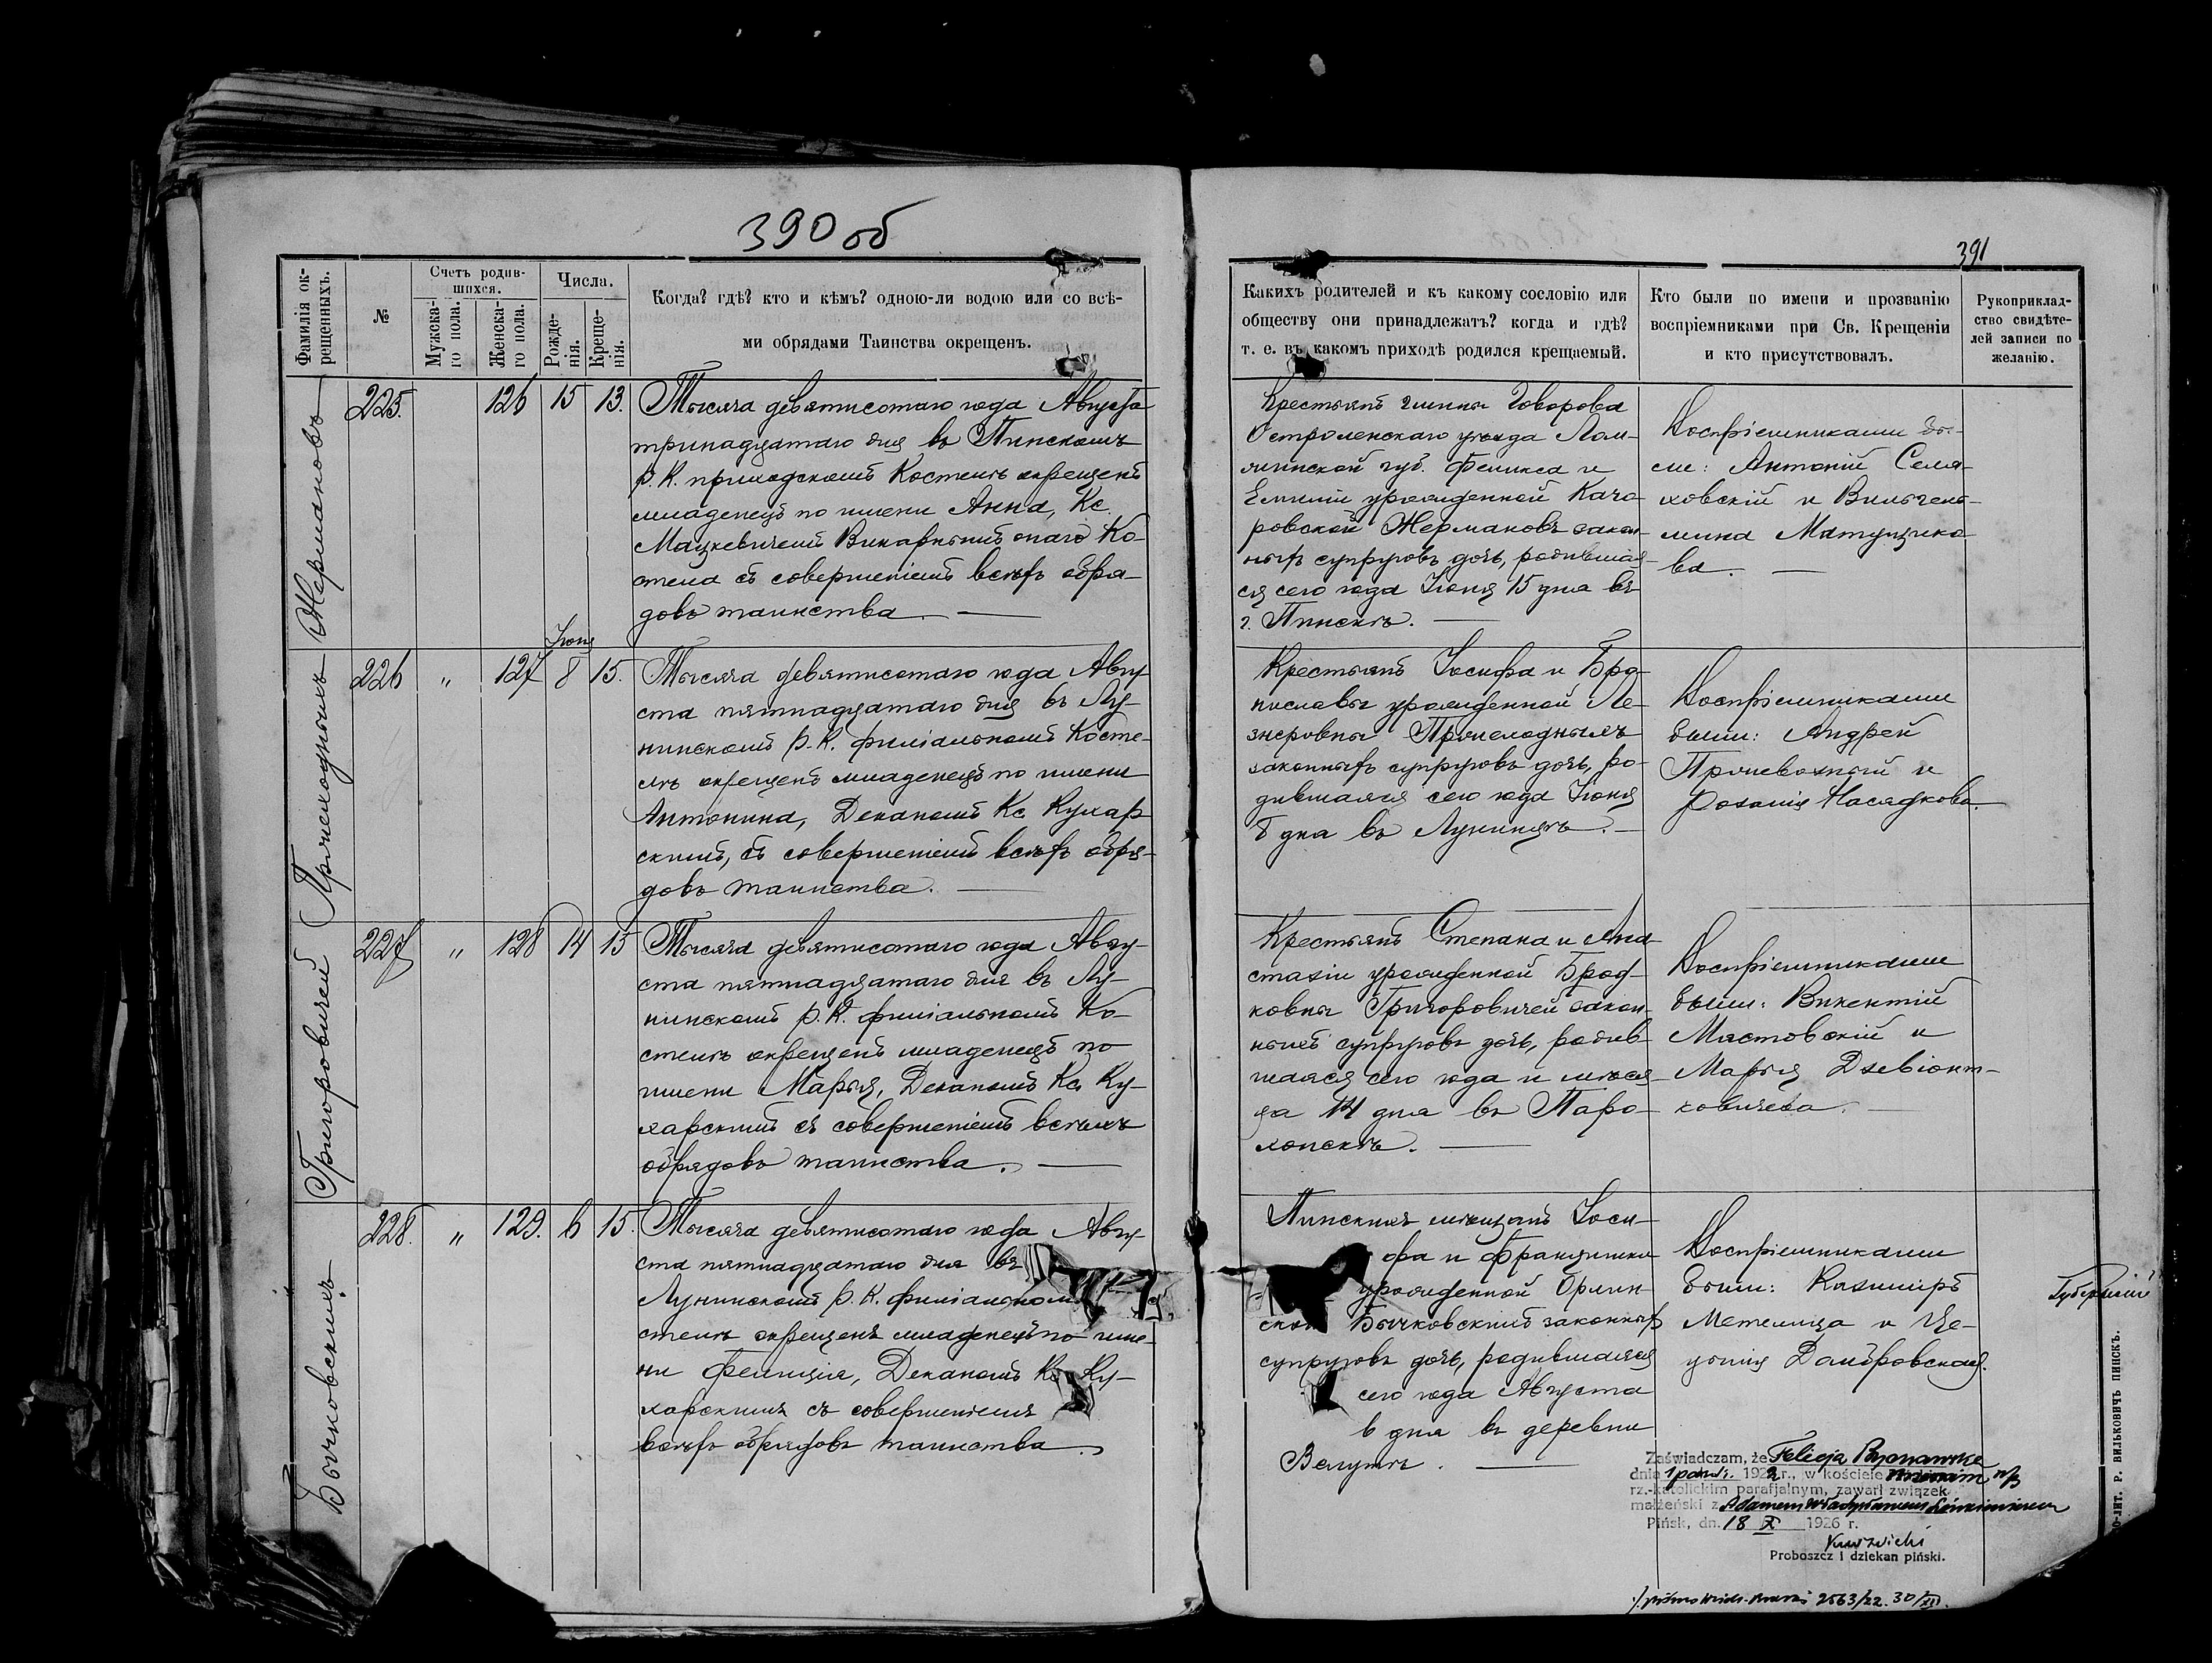 390 об
391
Фамилія ок-
рещенныхъ.
№
Счетъ родив-
шихся.
Мужска-
го пола.
Женска-
го пола.
Числа.
Рожде-
нія.
Креще-
нія.
Когда? гдѣ? кто и кѣмъ? одною-ли водою или со всѣ-
ми обрядами Таинства окрещенъ.
Какихъ родителей и къ какому сословію или
обществу они принадлежатъ? когда и гдѣ?
т. е. въ какомъ приходѣ родился крещаемый.
Кто были по имени и прозванію
воспріемниками при Св. Крещеніи
и кто присутствовалъ.
Рукоприклад-
ство свидѣте-
лей записи по
желанію.
Жермановъ
225. 126 15 13.
Тысяча девятисотаго года Августа
тринадцатаго дня въ Пинскомъ
Р. К. приходскомъ Костелѣ окрещенъ
младенецъ по имени Анна, Кс.
Мацкевичемъ Викарнымъ онаго Ко-
стела съ совершеніемъ всѣхъ обря-
довъ таинства.
Крестьянъ гмины Говорова
Остроленскаго уѣзда Лом-
жинской губ. Феликса и
Емиліи урожденной Каче-
ровской Жермановъ закон-
ныхъ супруговъ дочь, родившая-
ся сего года Іюня 15 дня въ
г. Пинскѣ.
Воспріемниками бы-
ли: Антоній Селя-
ховскій и Вильгель-
мина Матущико-
ва.
226 " 127 Іюня 8 15.
Тысяча девятисотаго года Авгу-
ста пятнадцатаго дня въ Лу-
нинскомъ Р. К. филіальномъ Косте-
лѣ окрещенъ младенецъ по имени
Антонина, Деканомъ Кс. Кухар-
скимъ, съ совершеніемъ всѣхъ обря-
довъ таинства.
Крестьянъ Іосифа и Бро-
ниславы урожденной Ле-
законныхъ супруговъ дочь, ро-
дившаяся сего года Іюня
8 дня въ Лунинцѣ.
Воспріемниками
были: Андрей
и
Розалія Насядкова.
Григоровичей
227 " 128 14 15
Тысяча девятисотаго года Авгу-
ста пятнадцатаго дня въ Лу-
нинскомъ Р. К. филіальномъ Ко-
стелѣ окрещенъ младенецъ по
имени Марья, Деканомъ Кс. Ку-
харскимъ съ совершеніемъ всѣхъ
обрядовъ таинства.
Крестьянъ Степана и Ана-
стазіи урожденной Брод-
ковны Григоровичей закон-
ныхъ супруговъ дочь, родив-
шаяся сего года и мѣся-
ца 14 дня въ Паро-
хонскѣ.
Воспріемниками
были: Викентій
Мястовскій и
Марья Дзевіонт-
ковичева.
Бычковскихъ
228. " 129. 6 15.
Тысяча девятисотаго года Авгу-
ста пятнадцатаго дня въ
Лунинскомъ Р. К. филіальном
стелѣ окрещенъ младенецъ по име-
ни Фелиція, Деканомъ Кс. Ку-
харскимъ съ совершеніемъ
всѣхъ обрядовъ таинства.
Пинскихъ мѣщанъ Іоси-
фа и Францишки
урожденной Орлин-
ской Бычковскихъ законныхъ
супруговъ дочь, родившаяся
сего года Августа
6 дня въ деревни
Велутѣ.
Воспріемниками
были: Казимиръ
Метелица и Це-
цилія Домбровская.
Zaświadczam, że Felicja
dnia 1922 r., w kościele
rz.-katolickim parafjalnym, zawarł związek
małżeński z Adamem Władysławem
Pińsk, dn. 18 X 1926 r.
Proboszcz i dziekan piński.
2563/22. 30/XII.
-лит. р. вильковичъ пинскъ.